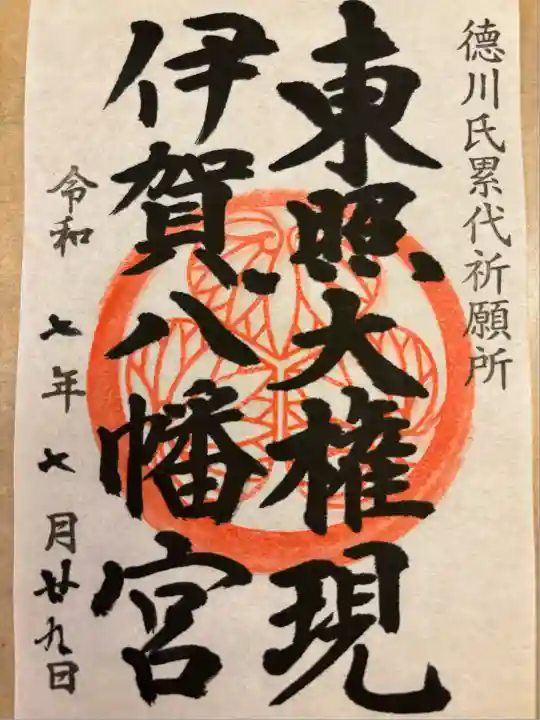 徳川氏累代祈願所
東照大権現
伊賀八幡宮
令和七年七月廿九日